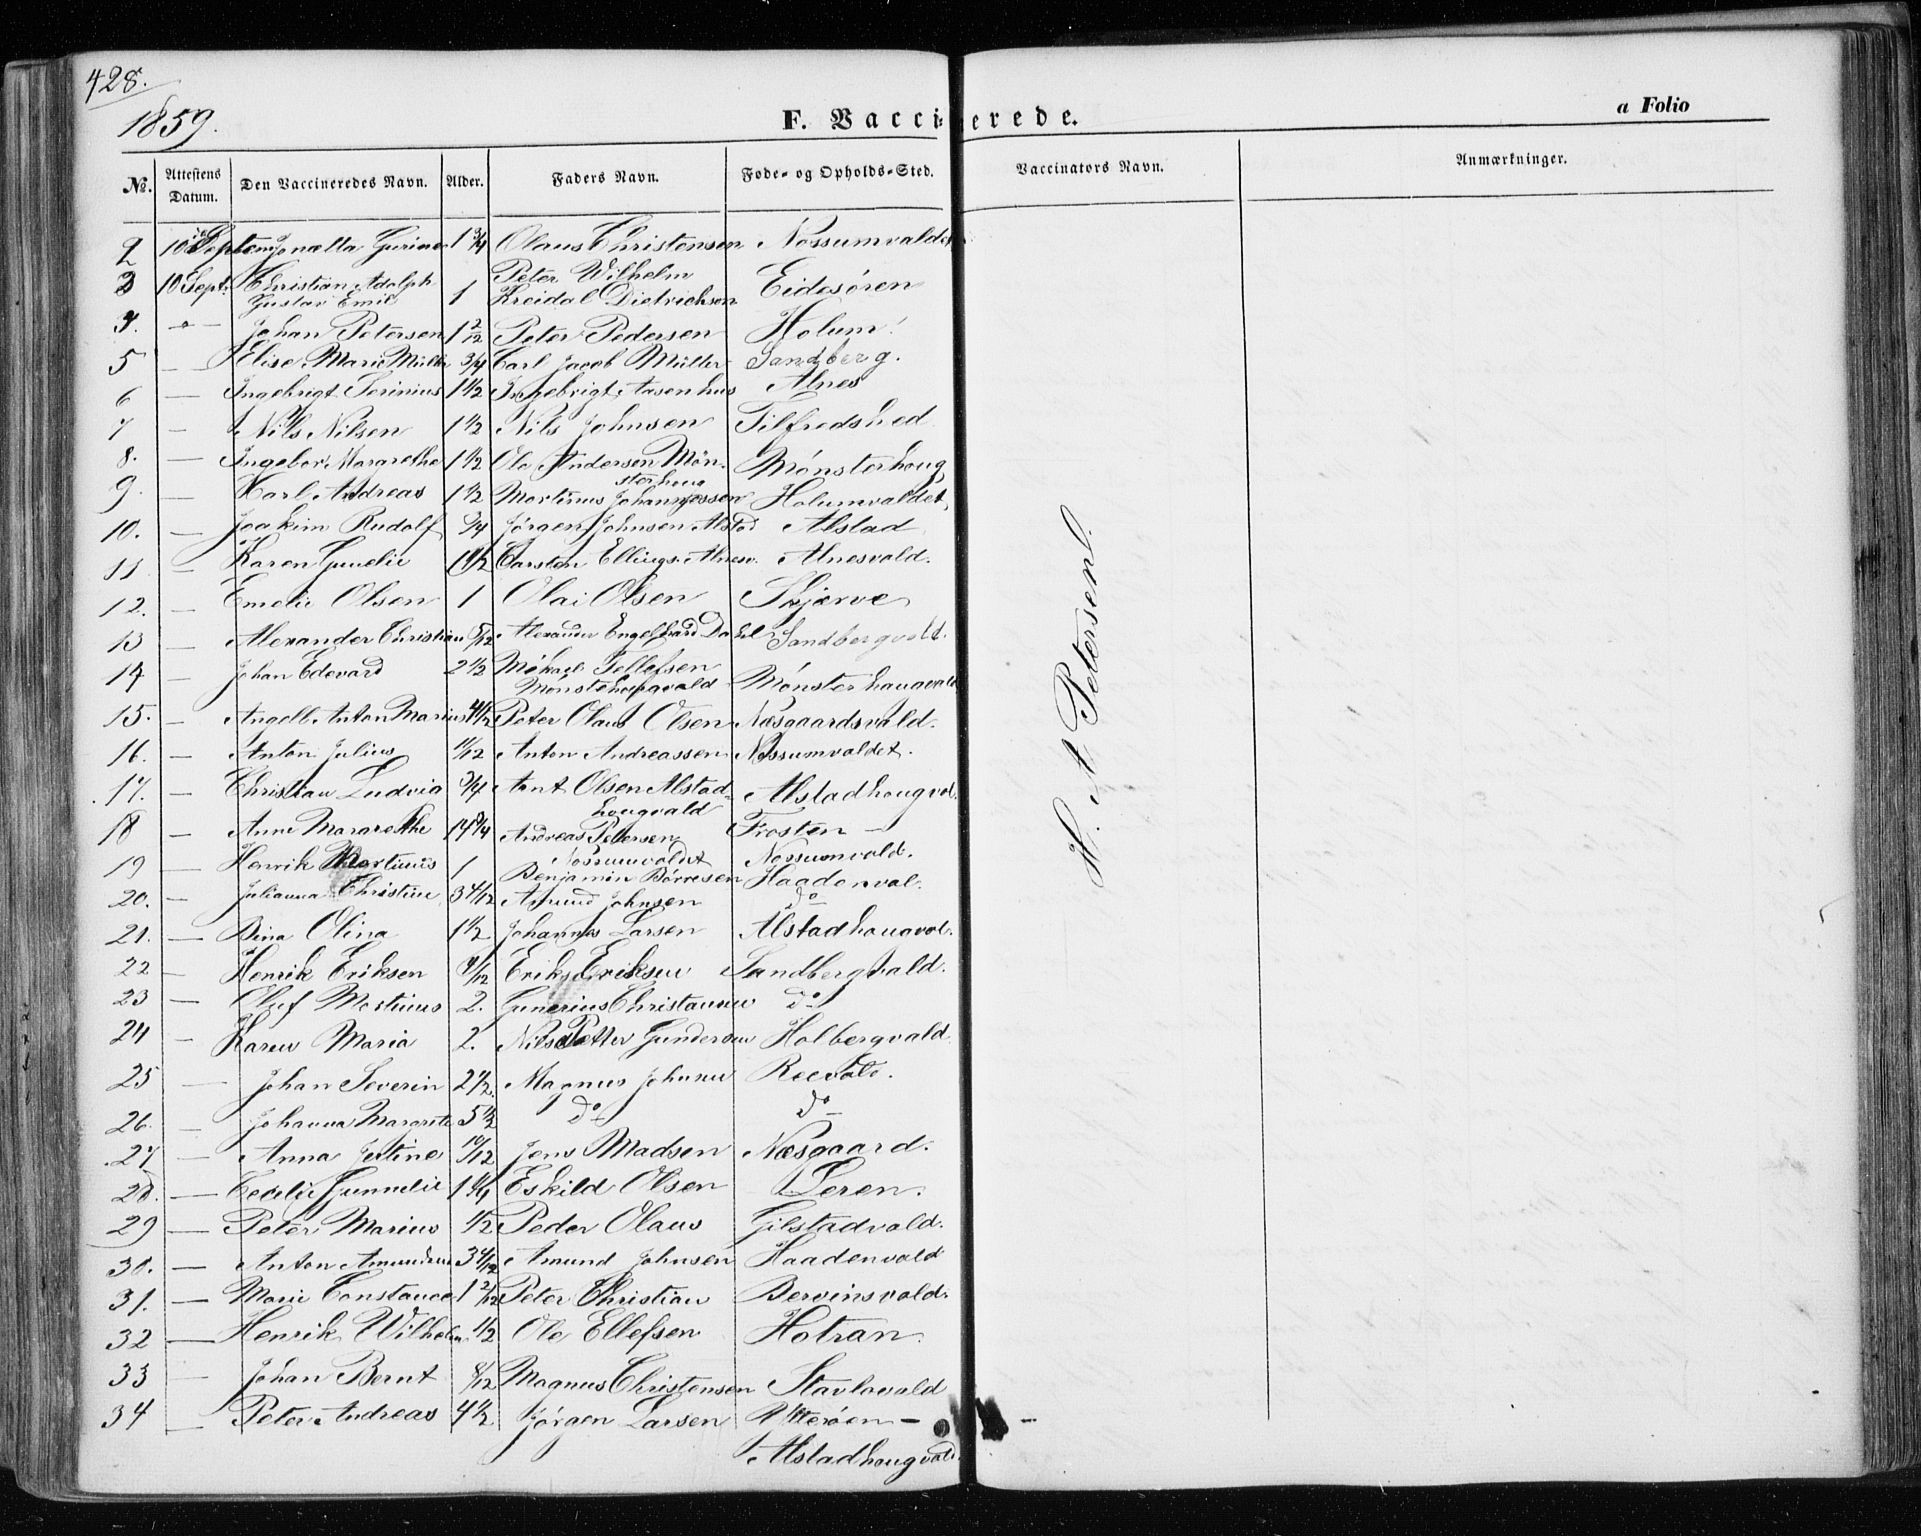 428.
1859.
F. Vaccinerede.
a Folio
No. Attestens Datum. Den Vaccineredes Navn. Alder. Faders Navn. Føde- og Opholds-Sted. Vaccinators Navn. Anmærkninger.
2 10 Septem Jonetta Gurine 1 3/4 Olaus Christensen Nossumvaldet
3 10 Sept. Christian Adolph Gustav Emil 1 Peter Wilhelm Kreidal Dietrichsen Eidesøren
4. Johan Petersen 1 2/12 Peter Pedersen Holum
5 — Elise Marie Müller 3/4 Carl Jacob Müller Sandberg.
6 — Ingebrigt Serinius 1 1/2 Ingebrigt Aasenhus Alnes
7 — Nils Nilsen 1 1/2 Nils Johnsen Tilfredshed
8. — Ingebor Margrethe 1 1/2 Ole Andersen Mønsterhoug Mønsterhoug
9. — Karl Andreas 1 1/2 Martinus Johannessen Holumvaldet
10. — Joakim Rudolf 3/4 Jørgen Johnsen Alstad Alstad
11 — Karen Gunelie 1 1/2 Carsten Ellings. Alnesv. Alnesvald.
12. — Emelie Olsen 1 Olai Olsen Skjerve
13 — Alexander Christian 5/12 Alexander Engelhard Dahl Sandbergvald.
14 — Johan Edevard 2 1/2 Mikael Tellefsen Mønsterhougvald Mønsterhaugvald
15. — Angell Anton Marius 4/12 Peter Olaus Olsen Næsgaardsvald.
16. — Anton Julius 11/12 Anton Andreassen Nossumvaldet.
17. — Christian Ludvig 3/4 Arnt Olsen Alstadhougvald Alstadhougval.
18 — Anne Margrethe 14 3/4 Andreas Petersen Nossumvaldet Frosten — Nossumvald.
19 — Henrik Martinus 1 Benjamin Børresen Haadenval.
20. — Julianna Christine 3 4/12 Amund Johnsen do
21. — Dina Olina 1 1/2 Johannes Larsen Alstadhaugval.
22 — Henrik Eriksen 9/12 Erik Eriksen Sandbergvald.
23 — Oluf Martinus 2. Gunerius Christiansen do
24 — Karen Maria 2. Nils Petter Gundersen Holbergvald
25 — Johan Severin 2 1/2 Magnus Johnsen Reevald.
26. — Johanna Margrete 5 1/2 do do
27 — Anna Justine 10/12 Jens Madsen Næsgaard.
28. — Cecelie Gunnelie 1 1/4 Eskild Olsen Leren.
29 — Peter Marius 1/2 Peder Olaus Gilstadvald.
30. — Anton Amundsen 3 4/12 Amund Johnsen Haadenvald
31. — Marie Constance 1 2/12 Peter Christian Bervinsvald.
32 — Henrik Wilhelm 1/2 Ole Ellefsen Hotran.
33 — Johan Bernt 8/12 Magnus Christensen Stavlovald
34 — Peter Andreas 4 1/2 Jørgen Larsen Ytterøen —
Alstadhougvald
H. A. Petersen.